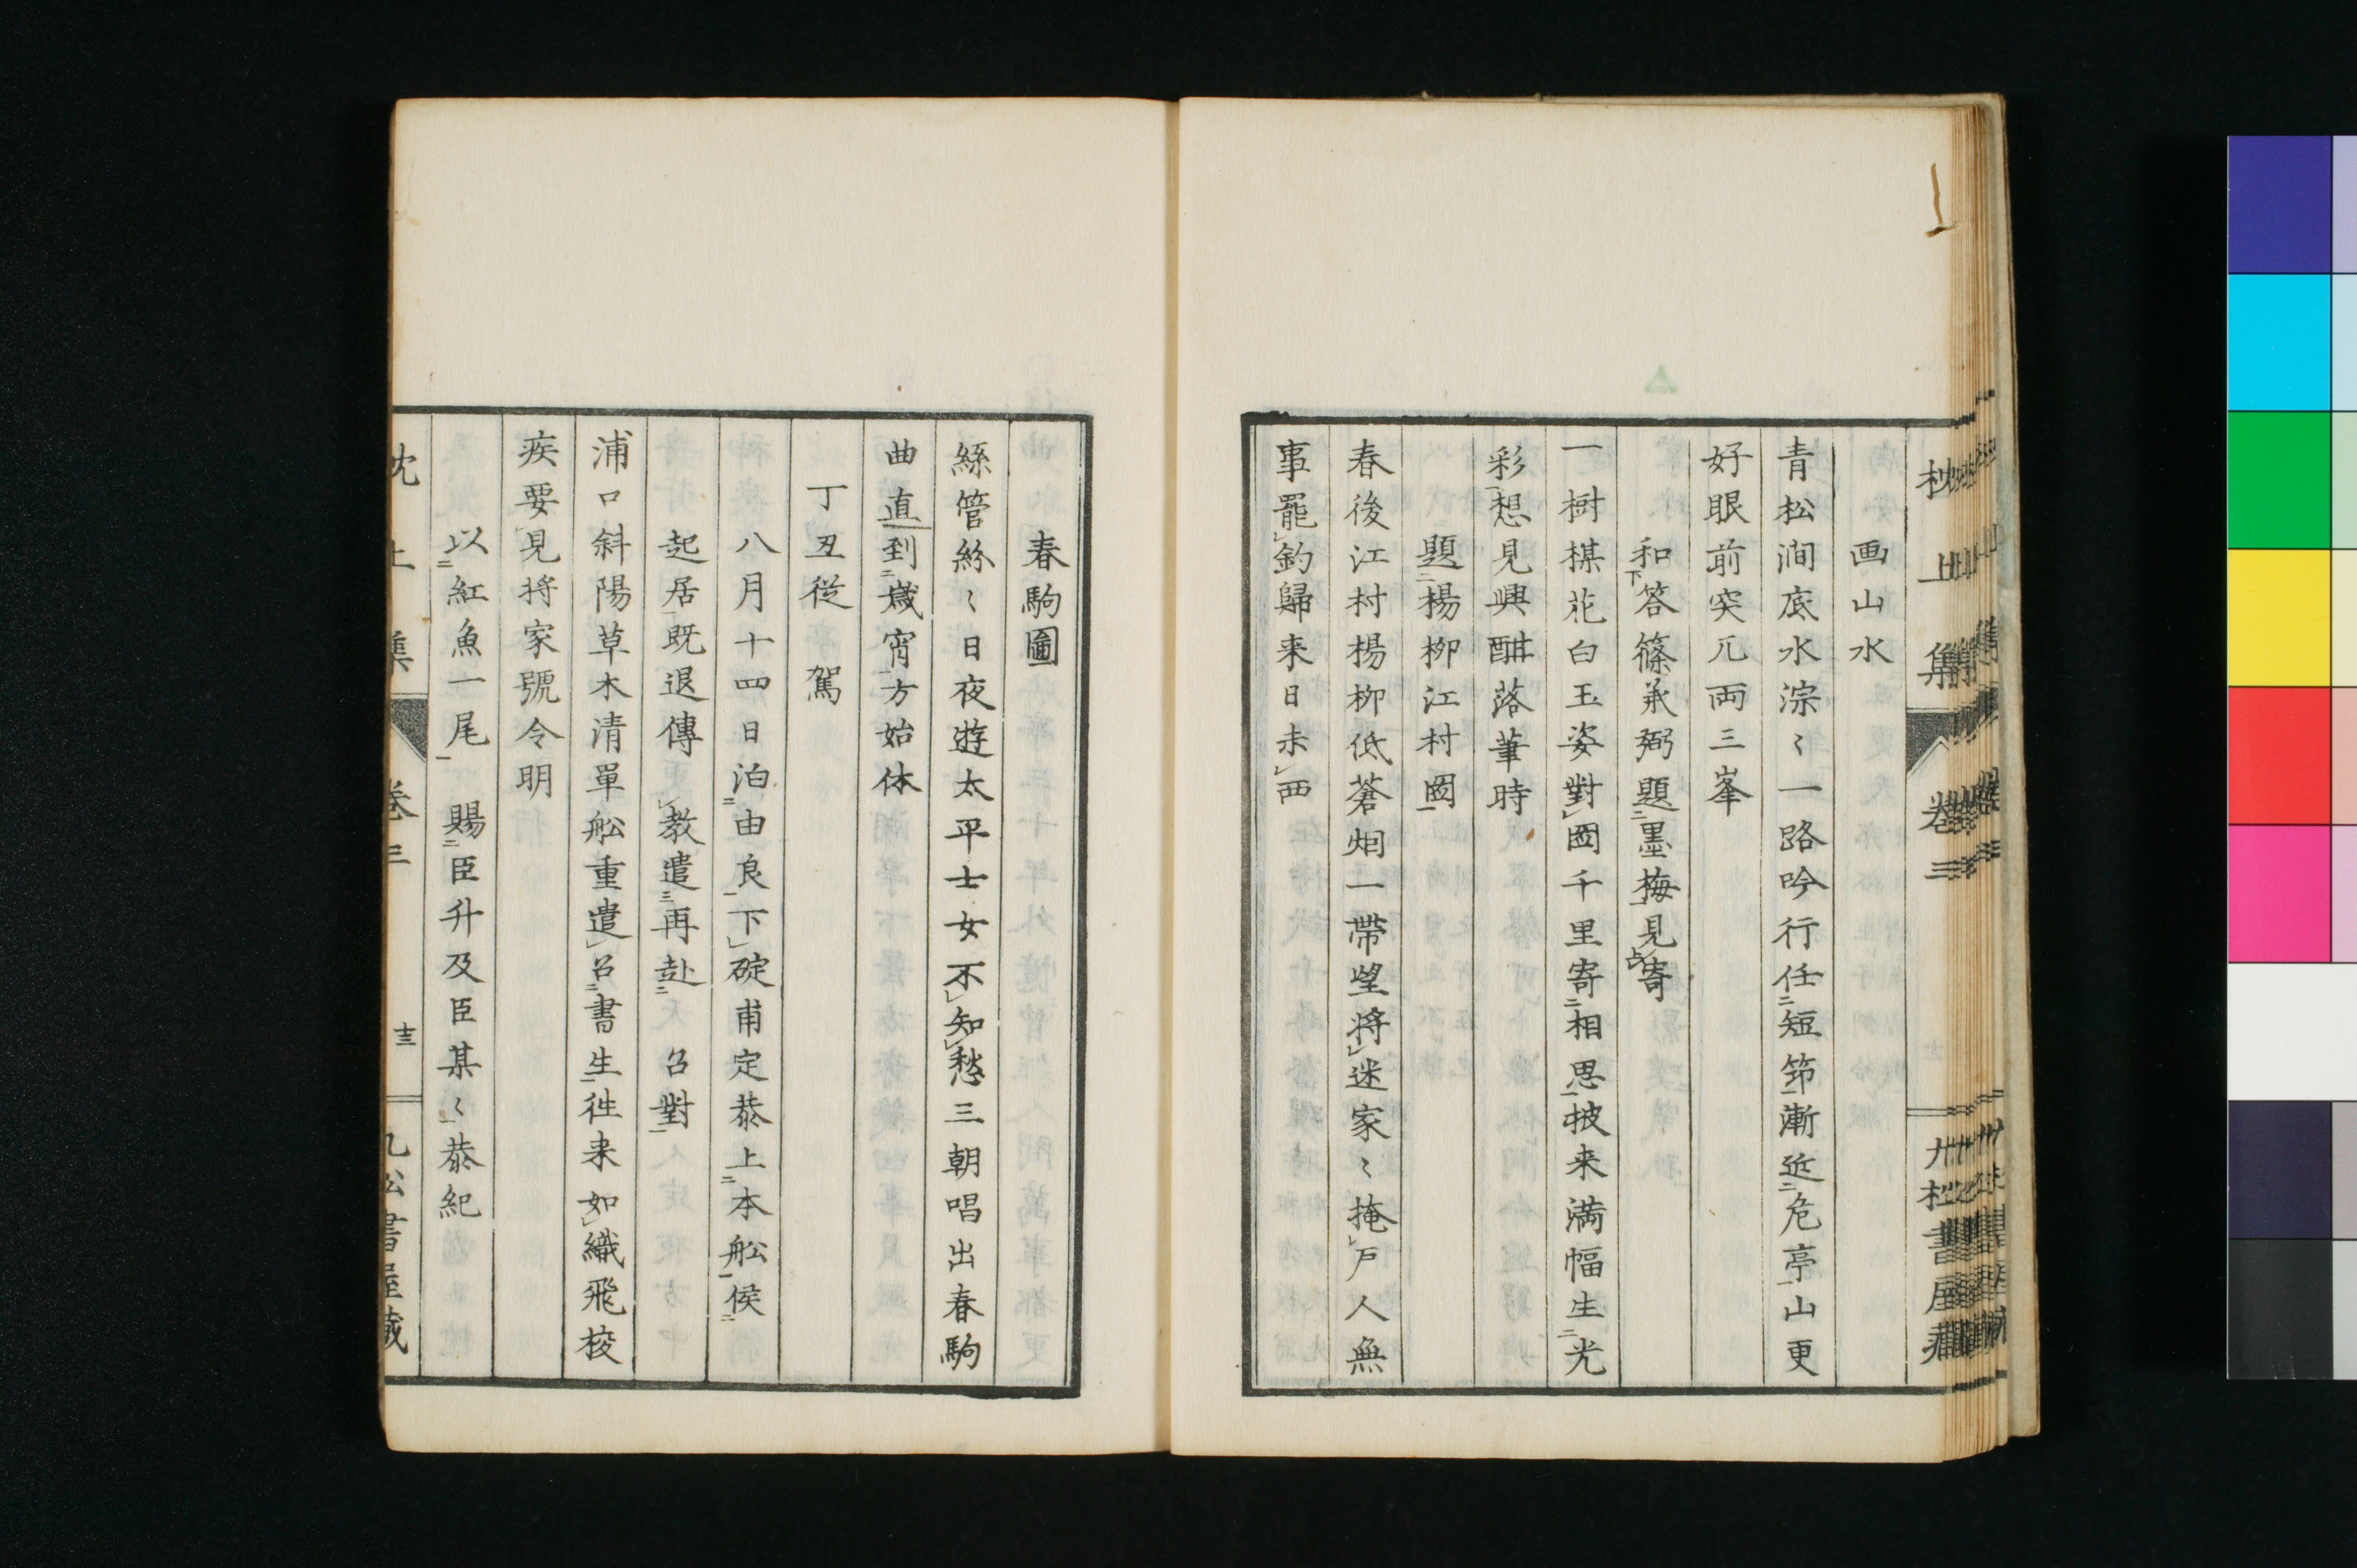 画山水
青松澗底水淙〻一路吟行任短筇漸近危亭山更
好眼前突兀両三峯
和答篠承弼題墨梅見寄
一樹槑花白玉姿對圖千里寄相思披来満幅生光
彩想見興酣落筆時
題楊柳江村圖
春後江村楊柳低蒼烟一帶望将迷家〻掩戸人無
事罷釣歸来日未西
春駒圖
絲管紛〻日夜遊太平士女不知愁三朝唱出春駒
曲直到歳宵方始休
丁丑從 駕
八月十四日泊由良下碇甫定恭上本舩候
起居既退傳 教遣再赴 召對
浦口斜陽草木清單舩重遣召書生徃来如織飛梭
疾要見将家號令明
以紅魚一尾 賜臣升及臣某〻恭紀
枕上集 卷三 十三 九松書屋藏